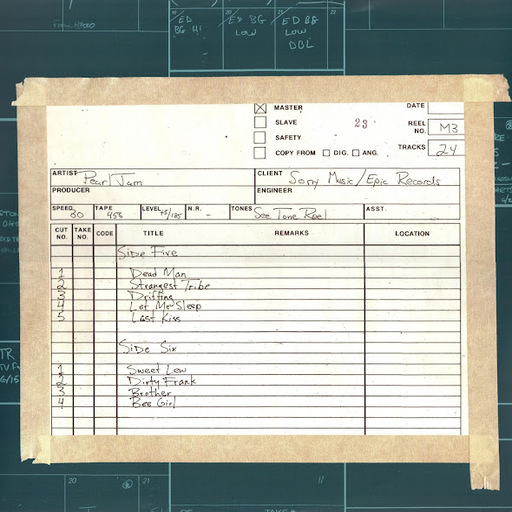 ED
BG
ED BG
LOW
ED BG
LOW
DBL
20
21
22
MASTER
DATE
SLAVE
23
REEL NO. M3
SAFETY
COPY FROM DIG. ANG.
TRACKS 24
ARTIST Pearl Jam
CLIENT Sony Music/Epic Records
PRODUCER
ENGINEER
SPEED 30 TAPE 456 LEVEL +5/185 N.R. - TONES See Tone Reel ASST.
CUT NO. TAKE NO. CODE TITLE REMARKS LOCATION
Side Five
1 Dead Man
2 Strangest Tribe
3 Drifting
4 Let Me Sleep
5 Last Kiss
Side Six
1 Sweet Lew
2 Dirty Frank
3 Brother
4 Bee Girl
TR
6/15
20
21
11